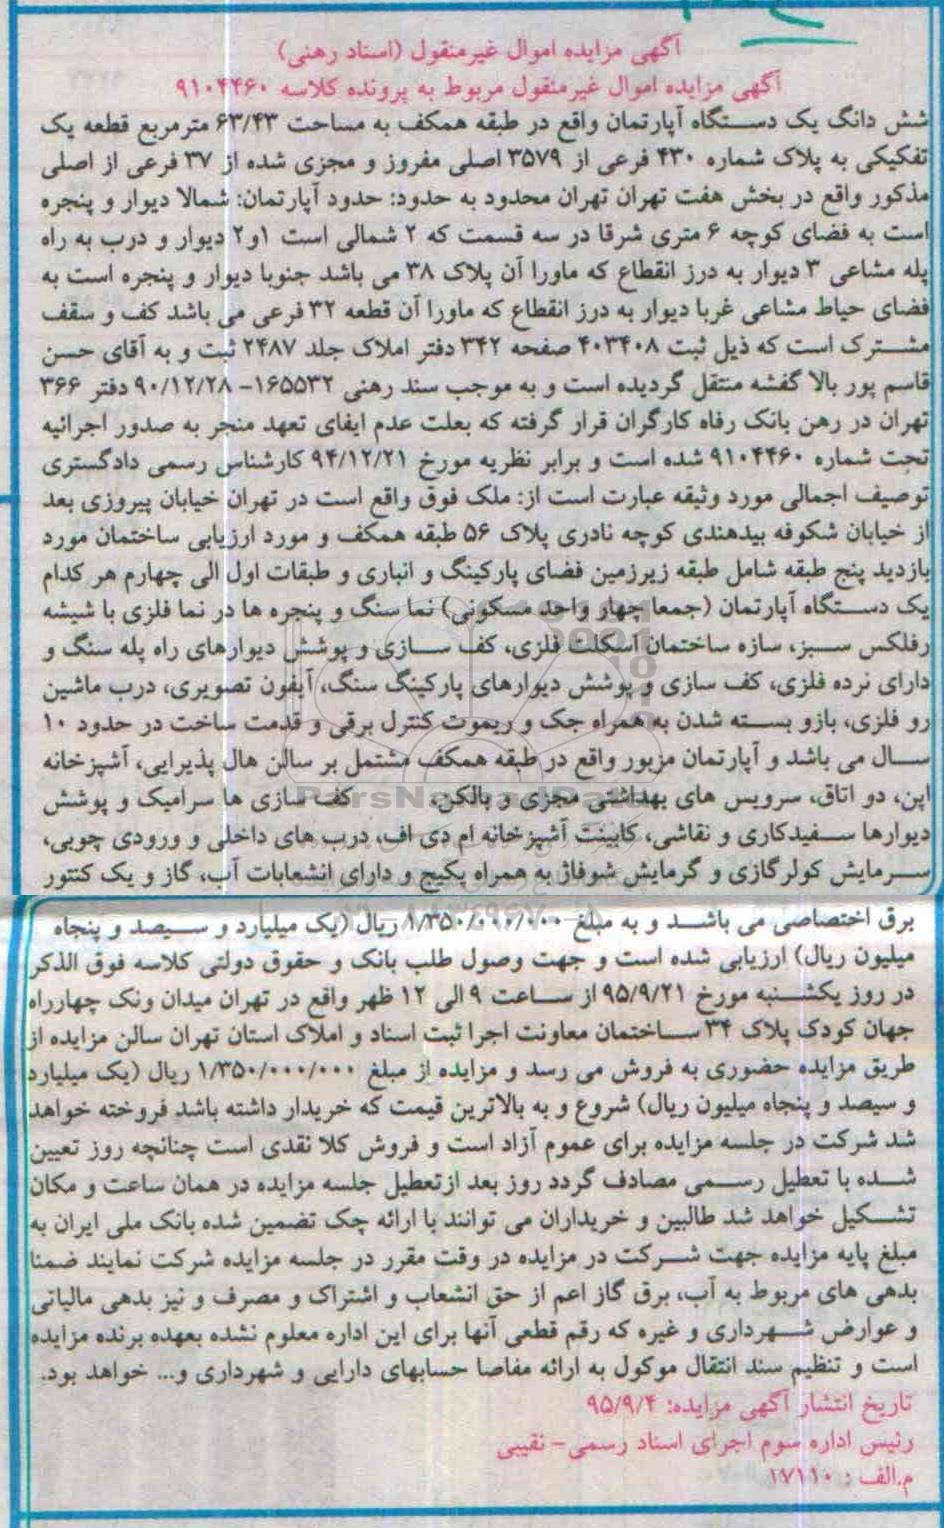 آگهی مزایده اموال غیرمنقول (اسناد رهنی)
آگهی مزایده اموال غیرمنقول مربوط به پرونده کلاسه ۹۱۰۴۴۶۰
شش دانگ یک دستگاه آپارتمان واقع در طبقه همکف به مساحت ۶۳/۴۳ مترمربع قطعه یک
تفکیکی به پلاک شماره ۴۳۰ فرعی از ۳۵۷۹ اصلی مفروز و مجزی شده از ۳۷ فرعی از اصلی
مذکور واقع در بخش هفت تهران تهران محدود به حدود: حدود آپارتمان: شمالا دیوار و پنجره
است به فضای کوچه ۶ متری شرقا در سه قسمت که ۲ شمالی است ۱و۲ دیوار و درب به راه
پله مشاعی ۳ دیوار به درز انقطاع که ماورا آن پلاک ۳۸ می باشد جنوبا دیوار و پنجره است به
فضای حیاط مشاعی غربا دیوار به درز انقطاع که ماورا آن قطعه ۳۲ فرعی می باشد کف و سقف
مشترک است که ذیل ثبت ۴۰۳۴۰۸ صفحه ۳۴۲ دفتر املاک جلد ۲۴۸۷ ثبت و به آقای حسن
قاسم پور بالا گفشه منتقل گردیده است و به موجب سند رهنی ۱۶۵۵۳۲- ۹۰/۱۲/۲۸ دفتر ۳۶۶
تهران در رهن بانک رفاه کارگران قرار گرفته که بعلت عدم ایفای تعهد منجر به صدور اجرائیه
تحت شماره ۹۱۰۴۴۶۰ شده است و برابر نظریه مورخ ۹۴/۱۲/۲۱ کارشناس رسمی دادگستری
توصیف اجمالی مورد وثیقه عبارت است از: ملک فوق واقع است در تهران خیابان پیروزی بعد
از خیابان شکوفه بیدهندی کوچه نادری پلاک ۵۶ طبقه همکف و مورد ارزیابی ساختمان مورد
بازدید پنج طبقه شامل طبقه زیرزمین فضای پارکینگ و انباری و طبقات اول الی چهارم هر کدام
یک دستگاه آپارتمان (جمعا چهار واحد مسکونی) نما سنگ و پنجره ها در نما فلزی با شیشه
رفلکس سبز، سازه ساختمان اسکلت فلزی، کف سازی و پوشش دیوارهای راه پله سنگ و
دارای نرده فلزی، کف سازی و پوشش دیوارهای پارکینگ سنگ، آیفون تصویری، درب ماشین
رو فلزی، بازو بسته شدن به همراه جک و ریموت کنترل برقی و قدمت ساخت در حدود ۱۰
سال می باشد و آپارتمان مزبور واقع در طبقه همکف مشتمل بر سالن هال پذیرایی، آشپزخانه
اپن، دو اتاق، سرویس های بهداشتی مجزی و بالکن، کف سازی ها سرامیک و پوشش
دیوارها سفیدکاری و نقاشی، کابینت آشپزخانه ام دی اف، درب های داخلی و ورودی چوبی،
سرمایش کولرگازی و گرمایش شوفاژ به همراه پکیج و دارای انشعابات آب، گاز و یک کنتور
برق اختصاصی می باشد و به مبلغ ۱/۳۵۰/۰۰۰/۰۰۰ ریال (یک میلیارد و سیصد و پنجاه
میلیون ریال) ارزیابی شده است و جهت وصول طلب بانک و حقوق دولتی کلاسه فوق الذکر
در روز یکشنبه مورخ ۹۵/۹/۲۱ از ساعت ۹ الی ۱۲ ظهر واقع در تهران میدان ونک چهارراه
جهان کودک پلاک ۳۴ ساختمان معاونت اجرا ثبت اسناد و املاک استان تهران سالن مزایده از
طریق مزایده حضوری به فروش می رسد و مزایده از مبلغ ۱/۳۵۰/۰۰۰/۰۰۰ ریال (یک میلیارد
و سیصد و پنجاه میلیون ریال) شروع و به بالاترین قیمت که خریدار داشته باشد فروخته خواهد
شد شرکت در جلسه مزایده برای عموم آزاد است و فروش کلا نقدی است چنانچه روز تعیین
شده با تعطیل رسمی مصادف گردد روز بعد ازتعطیل جلسه مزایده در همان ساعت و مکان
تشکیل خواهد شد طالبین و خریداران می توانند با ارائه چک تضمین شده بانک ملی ایران به
مبلغ پایه مزایده جهت شرکت در مزایده در وقت مقرر در جلسه مزایده شرکت نمایند ضمنا
بدهی های مربوط به آب، برق گاز اعم از حق انشعاب و اشتراک و مصرف و نیز بدهی مالیاتی
و عوارض شهرداری و غیره که رقم قطعی آنها برای این اداره معلوم نشده بعهده برنده مزایده
است و تنظیم سند انتقال موکول به ارائه مفاصا حسابهای دارایی و شهرداری و... خواهد بود.
تاریخ انتشار آگهی مزایده: ۹۵/۹/۴
رئیس اداره سوم اجرای اسناد رسمی - نقیبی
م.الف : ۱۷۱۱۰